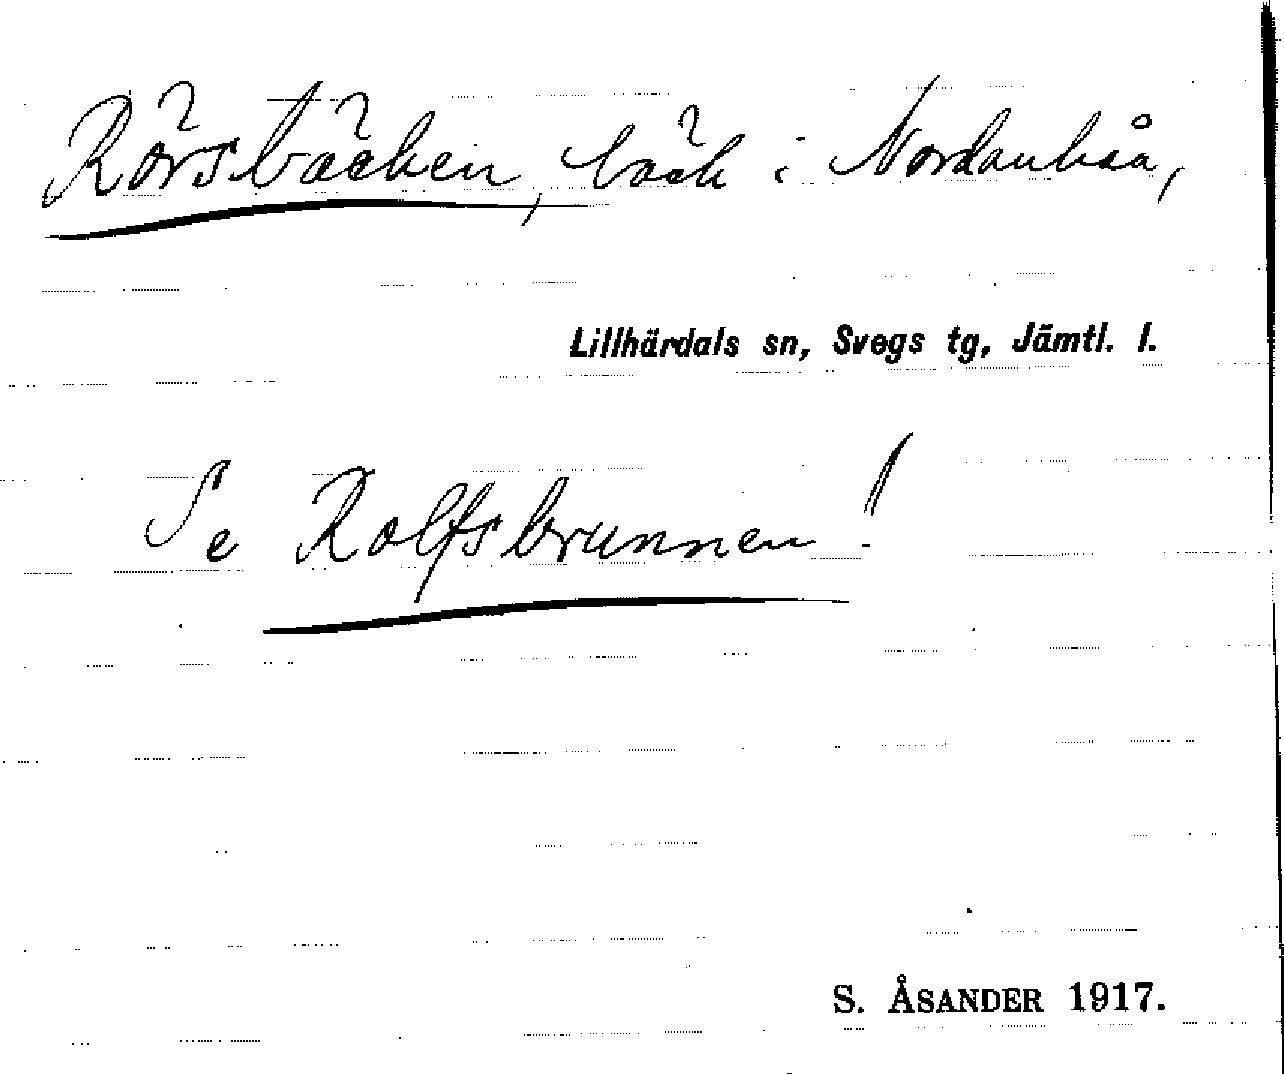 Rörsbäcken, bäck i Nordanhåa,
Lillhärdals sn, Svegs tg, Jämtl. l.
Se Rolfsbrunnen!
S. ÅSANDER 1917.